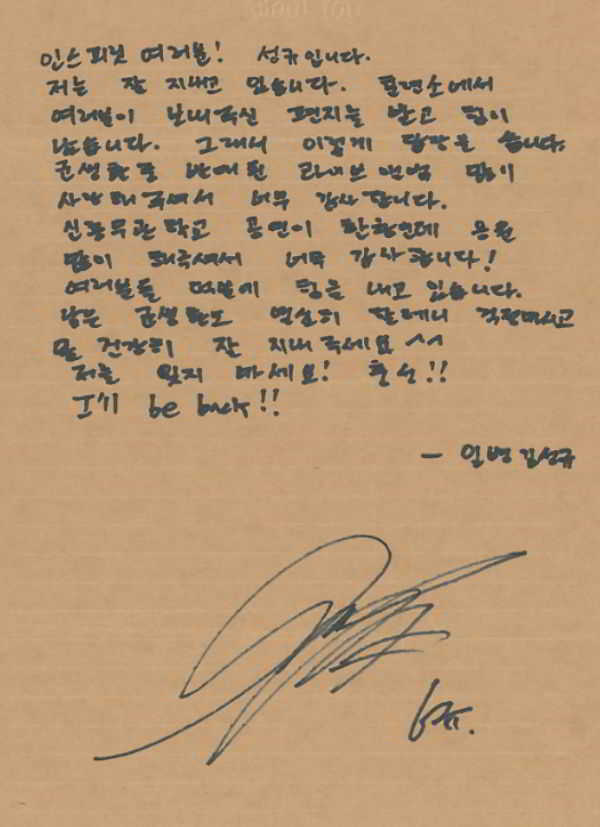 About You
인스피릿 여러분! 성규입니다.
저는 잘 지내고 있습니다. 훈련소에서
여러분이 보내주신 편지를 받고 힘이
났습니다. 그래서 이렇게 답장을 씁니다.
군생활 중 발매된 라이브앨범 많이
사랑해 주셔서 너무 감사합니다.
신흥무관학교 공연이 한창인데 응원
많이 해주셔서 너무 감사합니다!
여러분들 덕분에 힘을 내고 있습니다.
남은 군생활도 열심히 할테니 걱정마시고
몸 건강히 잘 지내주세요 ^^
저를 잊지 마세요! 충성!!
I'll be back!!
- 일병 김성규